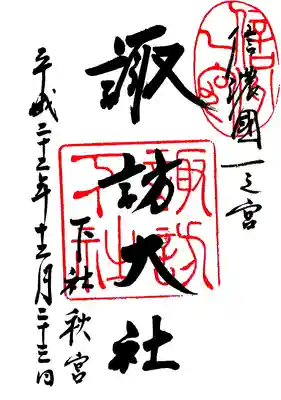 信濃國一之宮
諏訪大社
諏訪
下社
下社秋宮
平成二十三年十二月二十三日